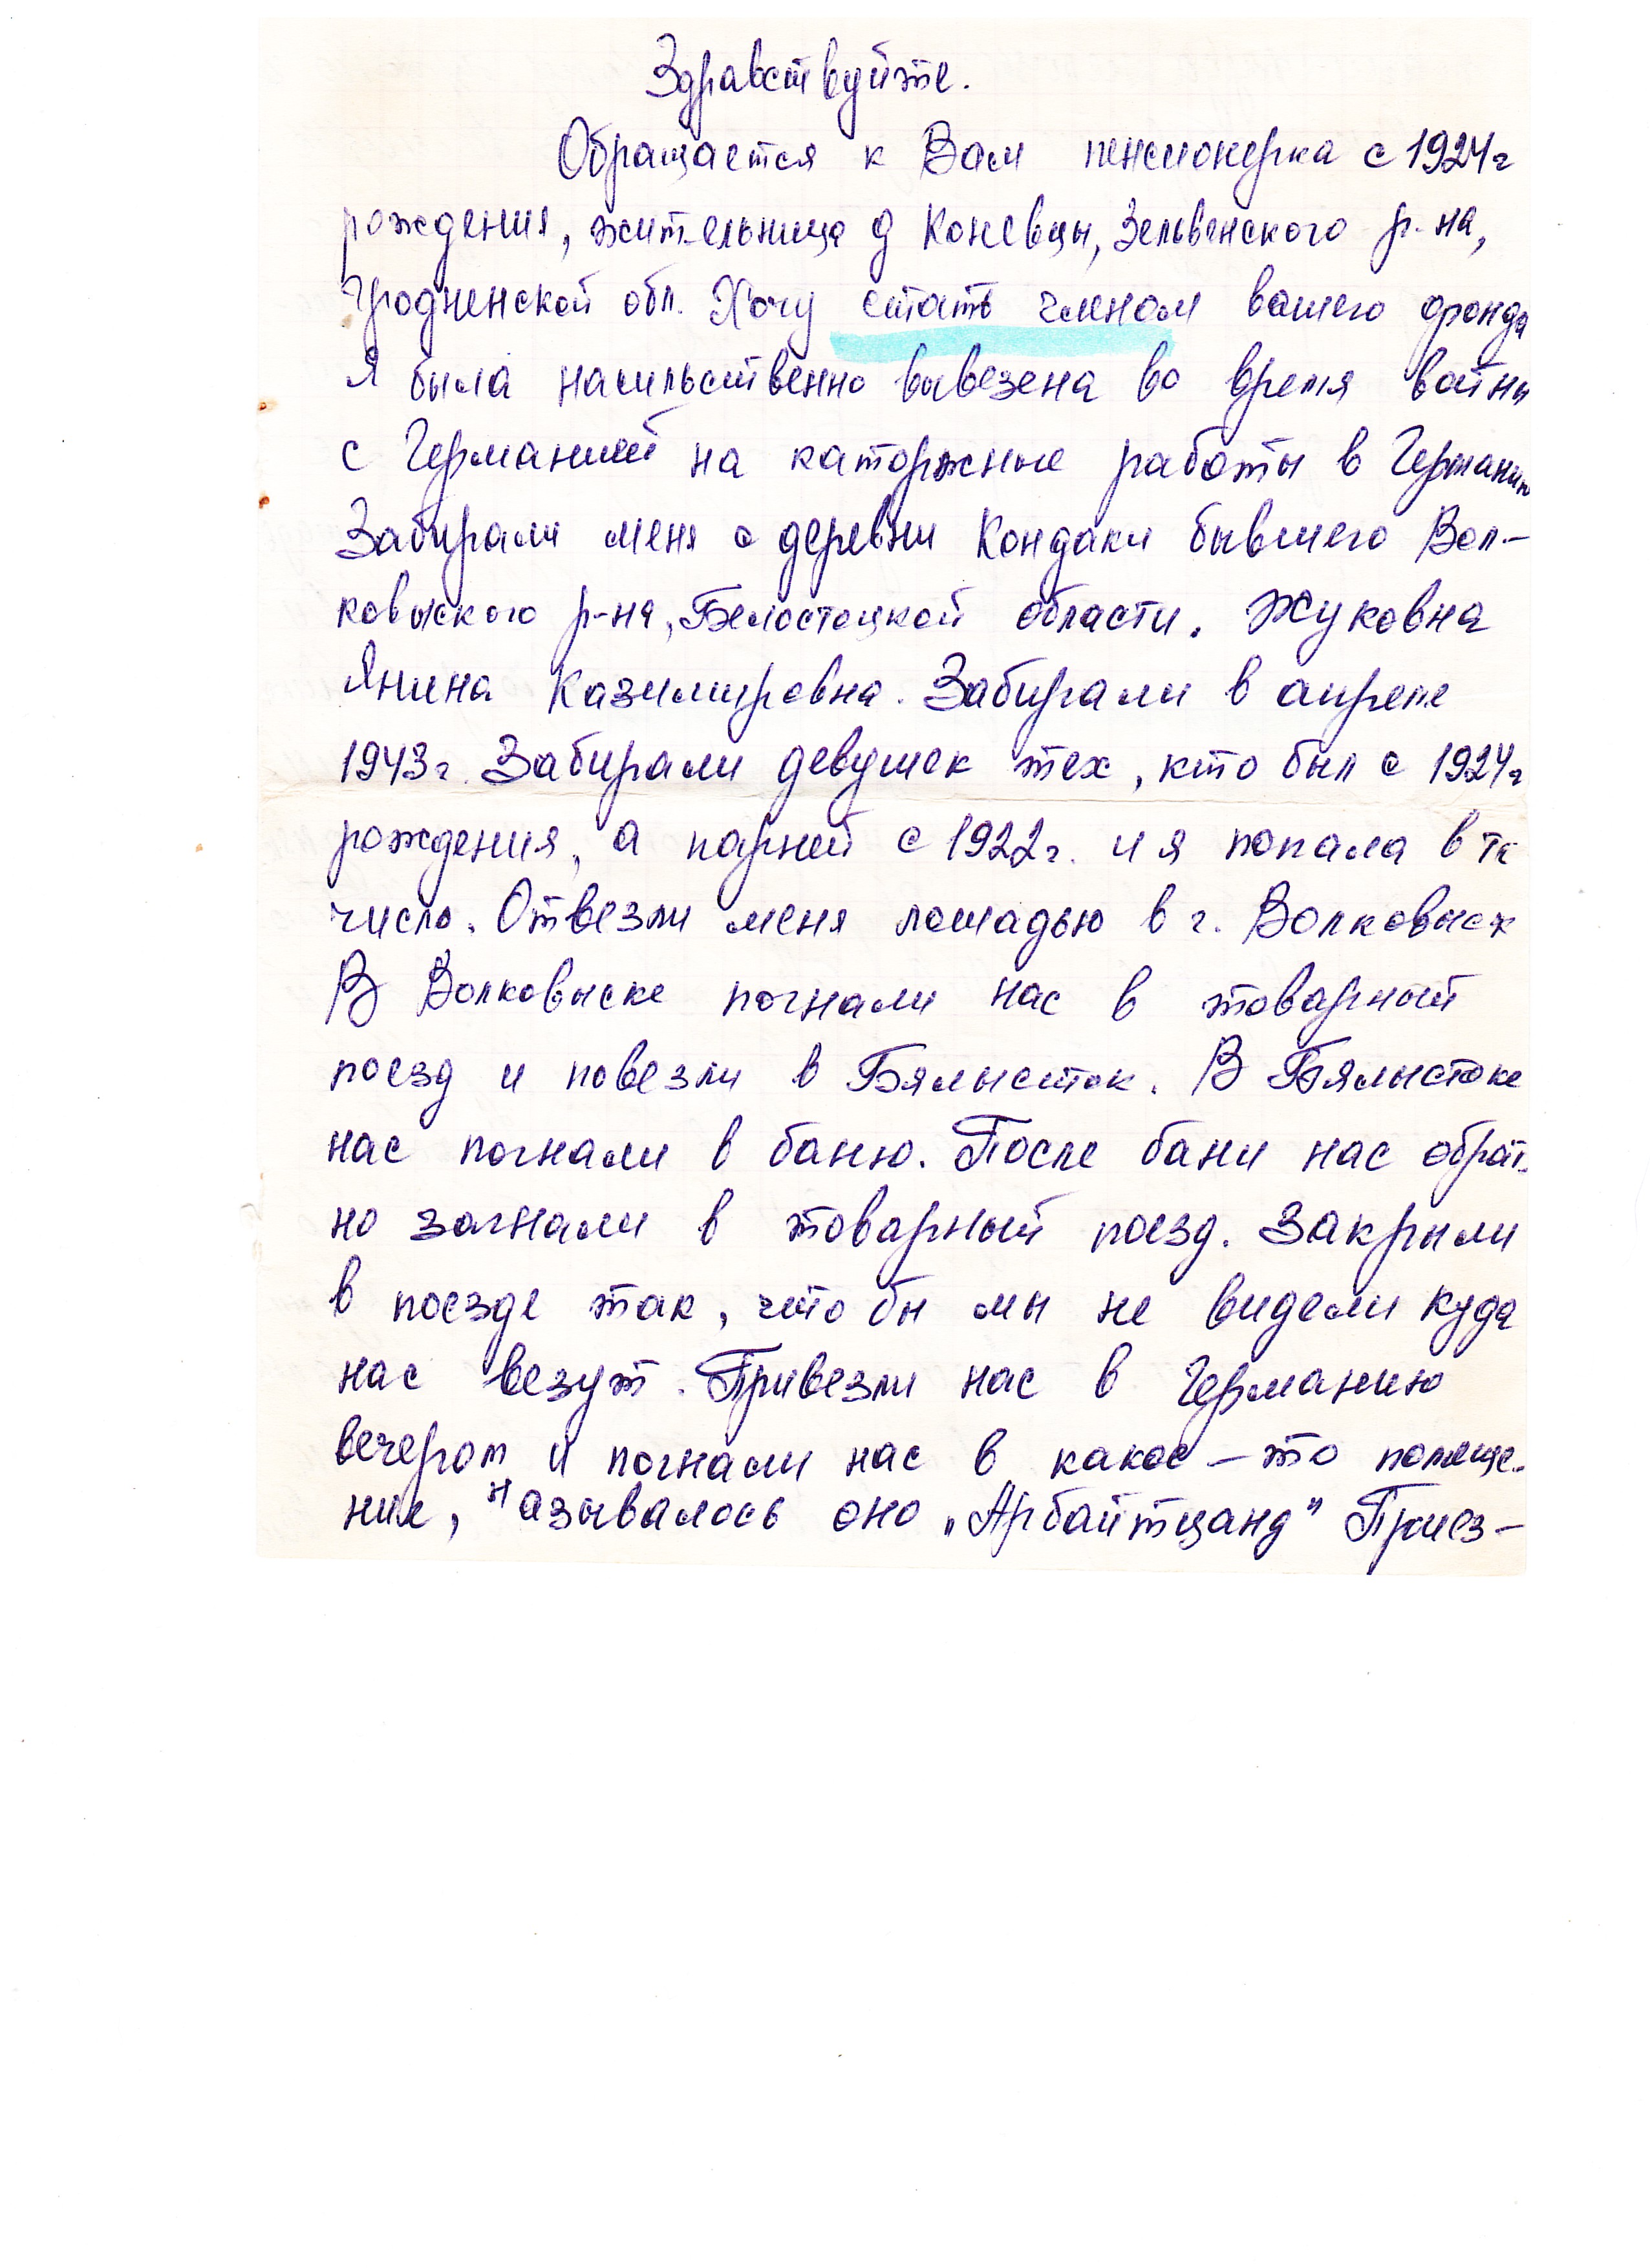 Здравствуйте.
Обращается к Вам пенсионерка с 1924г
рождения, жительница д Коневцы, Зельвенского р-на,
Гродненской обл. Хочу стать членом вашего фонда
Я была насильственно вывезена во время войны
с Германией на каторжные работы в Германию
Забирали меня с деревни Кондаки бывшего Вол-
ковыского р-на, Белостоцкой области. Жуковна
Янина Казимировна. Забирали в апреле
1943г. Забирали девушек тех, кто был с 1924г
рождения, а парней с 1922г. и я попала в то
число. Отвезли меня лошадью в г. Волковыск
В Волковыске погнали нас в товарный
поезд и повезли в Бялысток. В Бялыстоке
нас погнали в баню. После бани нас обрат-
но загнали в товарный поезд. Закрыли
в поезде так, что бы мы не видели куда
нас везут. Привезли нас в Германию
вечером и погнали нас в какое-то помеще-
ние, называлось оно „Арбайтцанд" Приез-